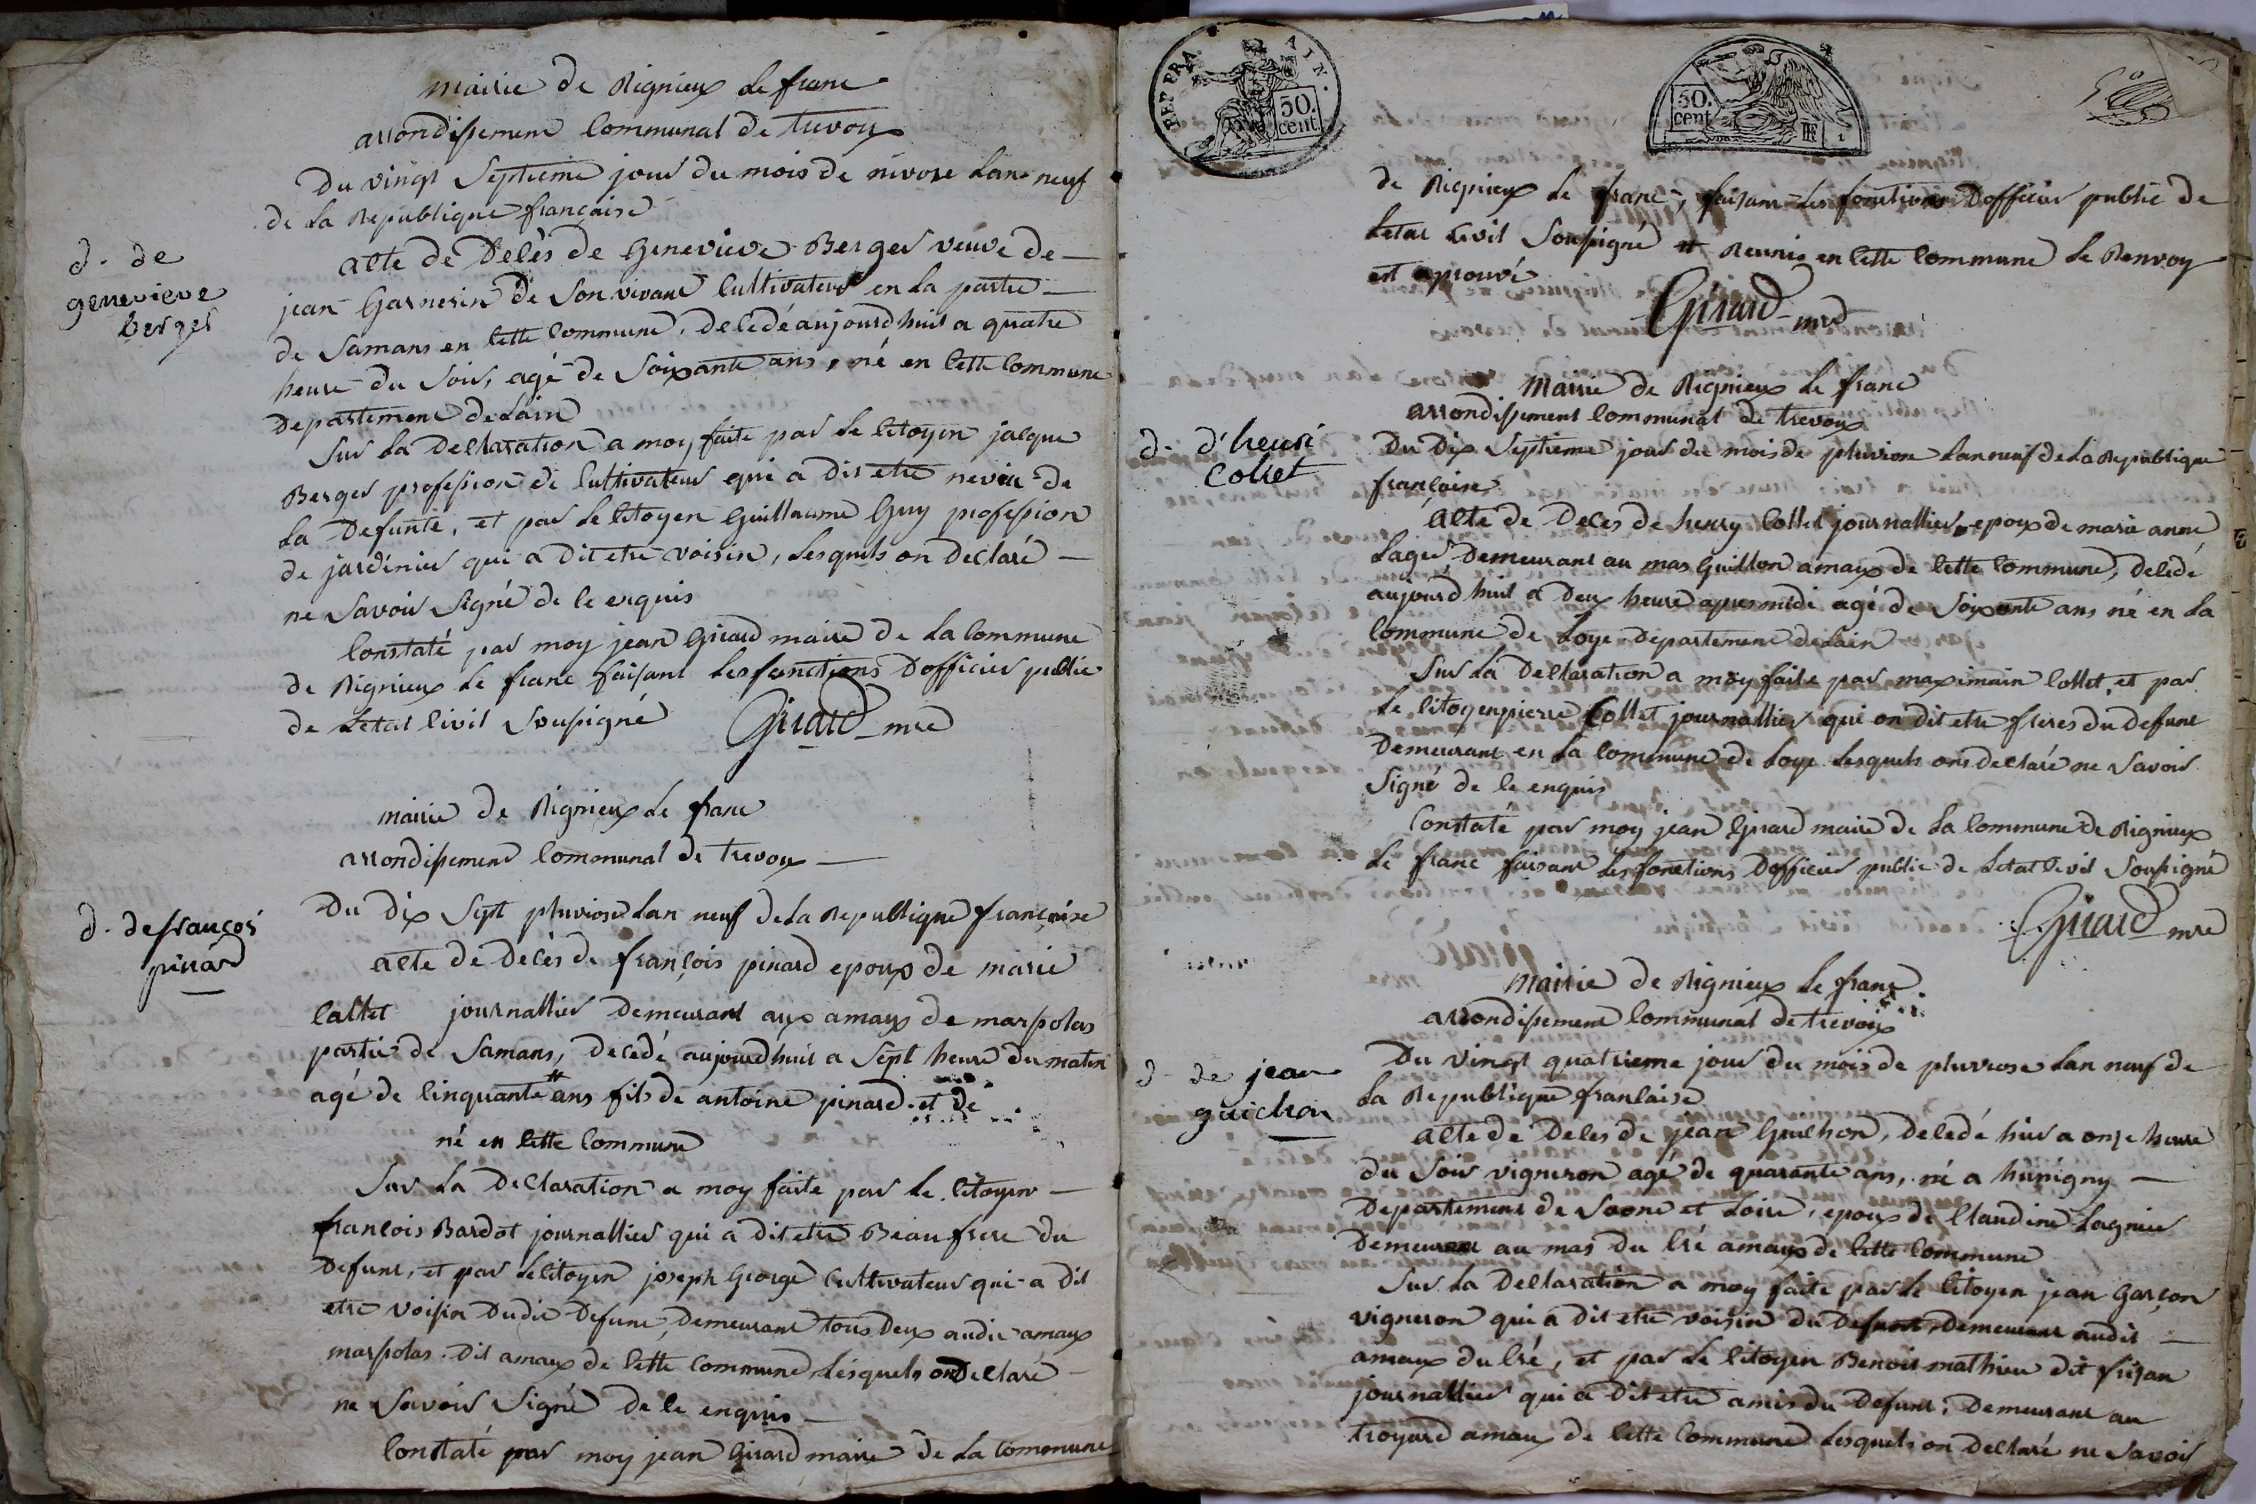 Mairie de Rignieux Le franc
arrondissement Communal de trevoux
Du vingt Septieme jour du mois de nivose Lan neuf
de La Republique française
d. de
genevieve
berger
acte de Decès de Genevieve Berger veuve de
jean Garnerin de Son vivant Cultivateur en La partie
de Samans en Cette Commune, decedé aujourdhuit a quatre
heure du Soir, agé de Soixante ans, né en Cette Commune
Departement de Lain
Sur La Declaration a moy faite par Le Citoyen jacque
Berger profession de Cultivateur qui a dit etre neveu de
La Defunte, et par Le Citoyen Guillaume Guy profession
de jardinier qui a Dit etre voisin, Lesquels on Declaré
ne Savoir Signé de Ce enquis
Constaté par moy jean Girard maire de La Commune
de Rignieux Le franc faisant Les fonctions Dofficier public
de Letat Civil Soussigné Girard mre
mairie de Rignieux Le franc
arrondissement Communal de trevoux
d. de françois
pinard
Du Dix Sept pluviose Lan neuf de La Republique française
acte de Decès de françois pinard epoux de marie
Collet journallier Demeurant aux amaux de marpolas
partie de Samans, Decedé aujourdhuit a Sept heure du matin
agé de Cinquante # ans fils de antoine pinard et de
né en Cette Commune
Sur La Declaration a moy faite par Le Citoyen
françois Bardot journallier qui a dit etre Beau frere du
Defunt, et par Le Citoyen joseph George Cultivateur qui a Dit
etre voisin Dudit Defunt, Demeurant tous Deux audit amaux
marpolas. Dit amaux de Cette Commune Lesquels on Declaré
ne Savoir Signé de Ce enquis
Constaté par moy jean Girard maire de La Commune
REP. FRA. AIN.
50.
cent
50.
cent
RF
de Rignieux Le franc, faisant Les fonctions Dofficier public de
Letat Civil Soussigné # Reunie en Cette Commune Le Renvoy
est aprouvé
Girard mre
Mairie de Rignieux Le franc
arrondissement Communal de trevoux
d. d'henri
Collet
Du Dix Septieme jour du mois de pluviose Lan neuf de La Republique
française
acte de Deces de henry Collet journallier epoux de marie anne
Lager, Demeurant au mas Guillon amaux de Cette Commune, Decedé
aujourdhuit a Deux heure apres midi agé de Soixante ans né en La
Commune de Loye Departement de Lain
Sur La Declaration a moy faite par maximain Collet, et par
Le Citoyen pierre Collet journallier qui on Dit etre freres du Defunt
Demeurant en La Commune de Loye Lesquels ont declaré ne Savoir
Signé de Ce enquis
Constaté par moy jean Girard maire de La Commune de Rignieux
Le franc faisant Les fonctions Dofficier public de Letat Civil Soussigné
Girard mre
Mairie de Rignieux Le franc
arrondissement Communal de trevoux
d. de jean
guichon
Du vingt quatrieme jour du mois de pluviose Lan neuf de
La Republique française
acte de Deces de jean Guichon, Decedé hier a onze heure
du Soir vigneron agé de quarante ans, né a hurigny
Departement de Saone et Loire, epoux de Claudine Lagnier
Demeurant au mas Du Cré amaux de Cette Commune
Sur La Declaration a moy faite par Le Citoyen jean Garçon
vigneron qui a Dit etre voisin du Defunt, Demeurant audit
amaux du Cré, et par Le Citoyen Benoit mathieu dit frisan
journallier qui a Dit etre amis du Defunt, Demeurant au
troyard amaux de Cette Commune Lesquels on Declaré ne Savoir